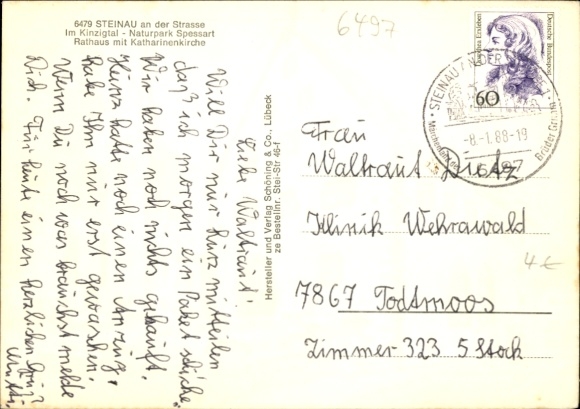 6479 STEINAU an der Strasse
Im Kinzigtal - Naturpark Spessart
Rathaus mit Katharinenkirche
6497
Liebe Waltraut!
Will Dir nur kurz mitteilen
daß ich morgen ein Paket schicke.
Wir haben noch nichts gekauft.
Heinz hatte noch einen Anzug.
habe Ihn nur erst gewaschen.
Wenn Du noch was brauchst melde
Dich. Für heute einen herzlichen Gruß
Mutti.
Hersteller und Verlag Schöning & Co., Lübeck
ze Bestellnr. Stei-Str 46-f
Deutsche Bundespost
60
STEINAU AN DER
-8.-1.88-19
6497
Brüder Gri
Frau
Waltraut Dietz
Klinik Wehrawald
4 €
7867 Todtmoos
Zimmer 323 5 Stock